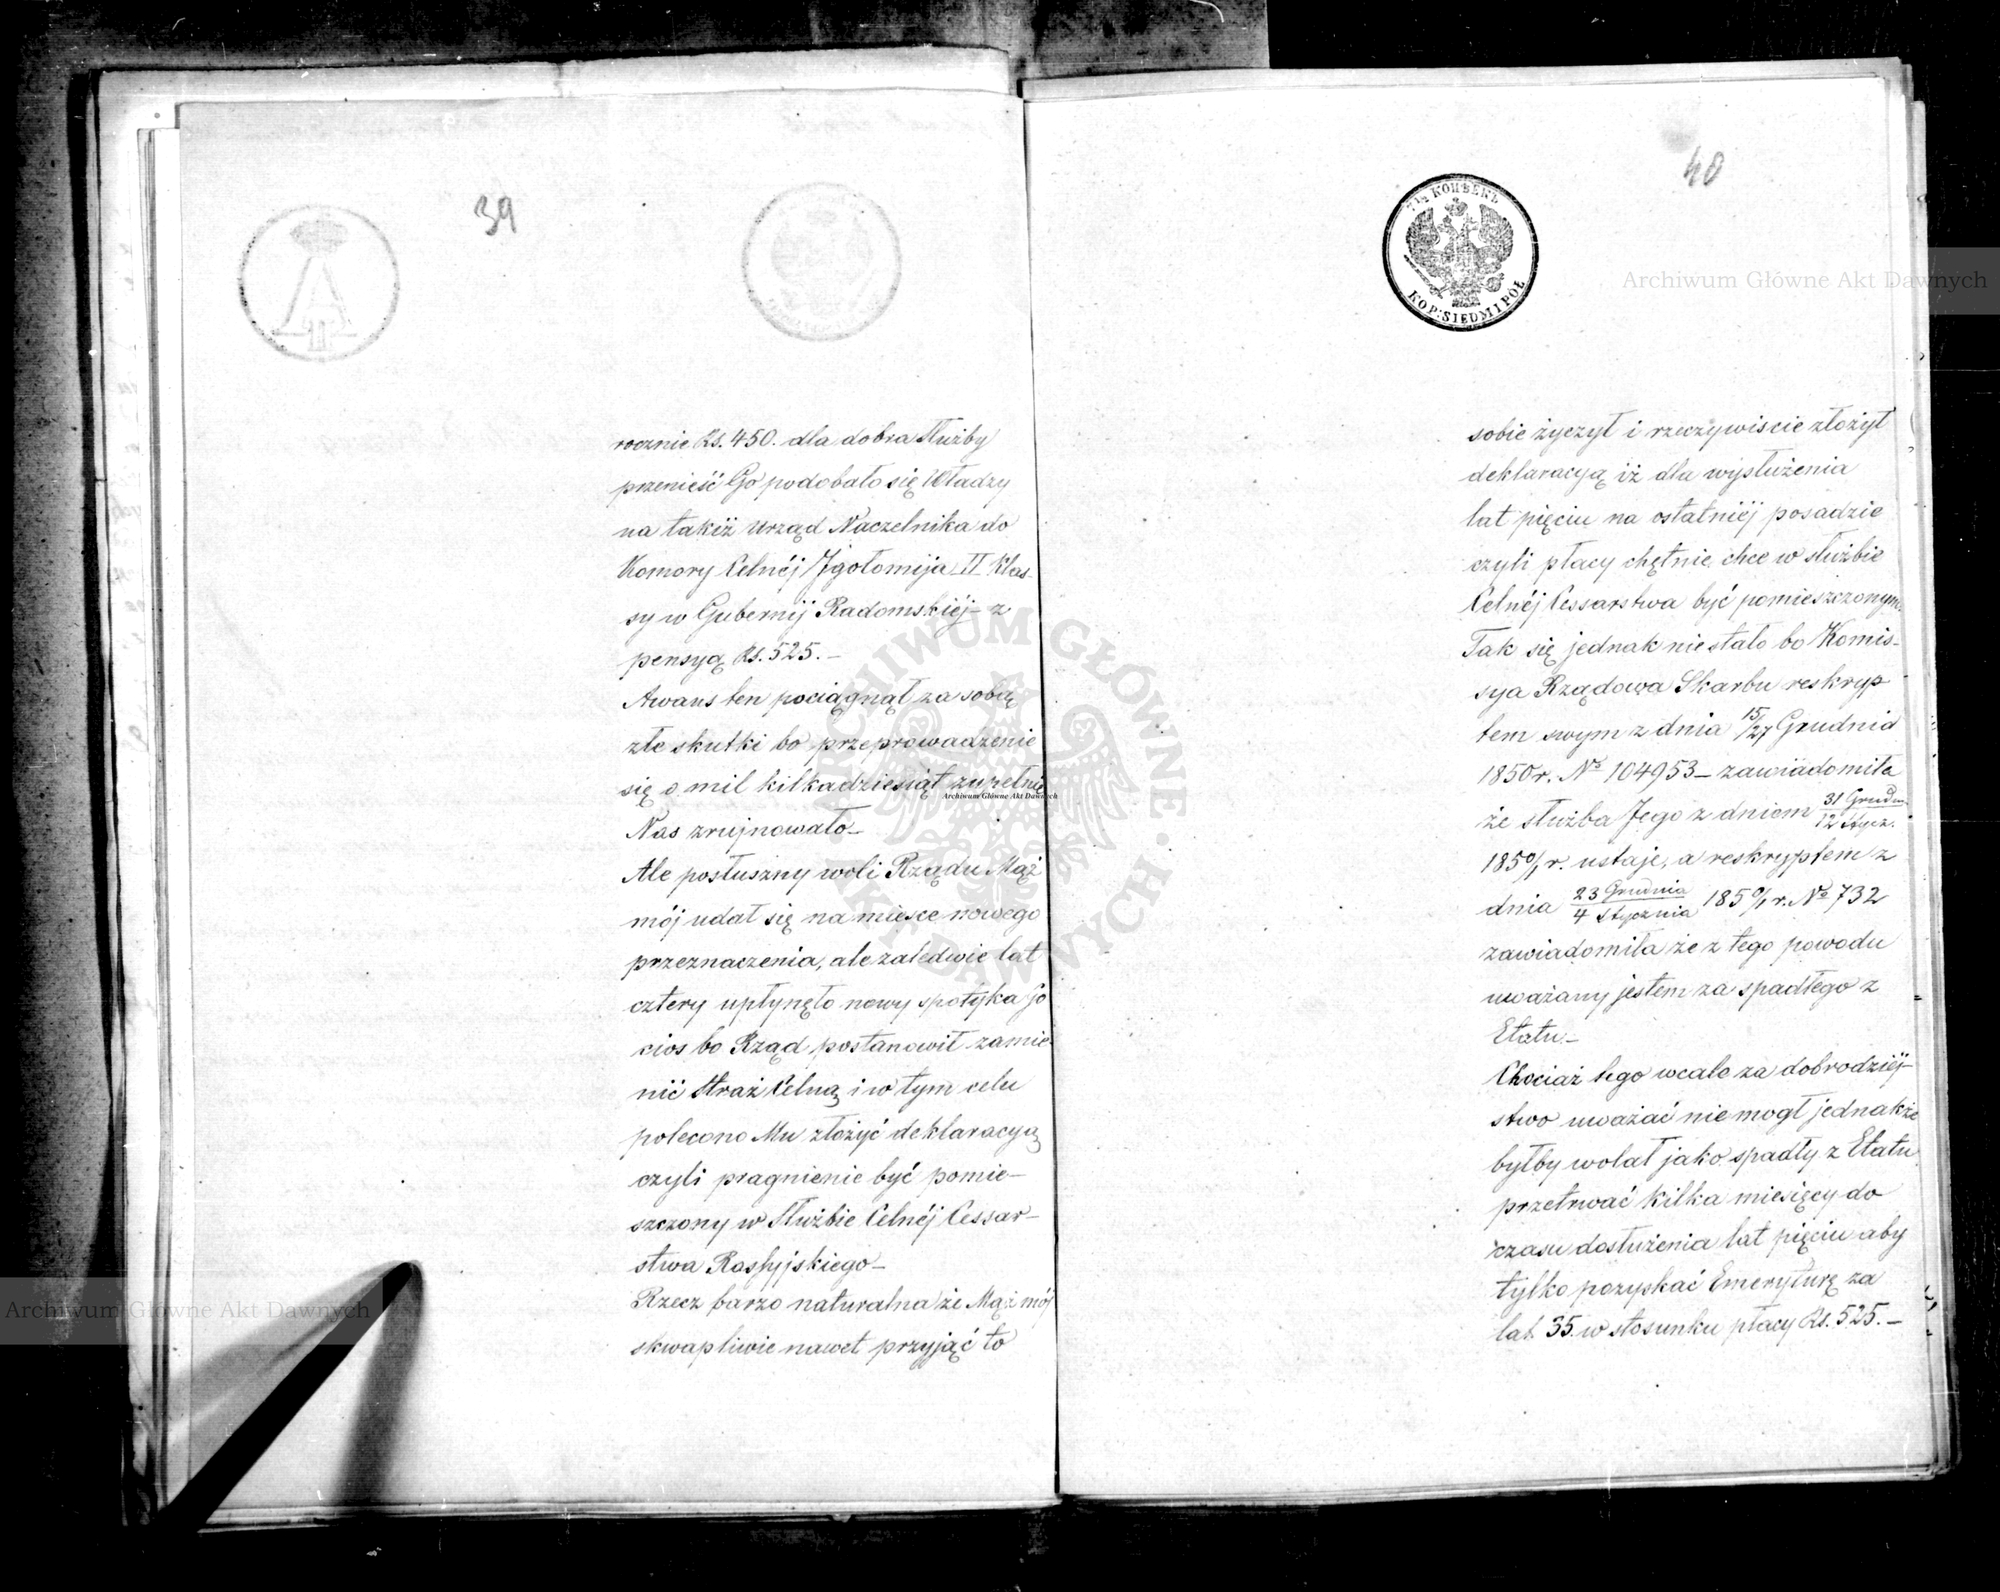 39
rocznie Rs. 450. dla dobra Służby
przenieść Go podobało się Władzy
na takiż urząd Naczelnika do
Komory Celnéj Igołomija II Klas-
sy w Gubernij Radomskiéj z
pensyą Rs. 525.–
Awans ten pociągnął za sobą
złe skutki bo przeprowadzenie
się o mil kilkadziesiąt zupełnie
Nas zrujnowało–
Ale posłuszny woli Rządu Mąż
mój udał się na miejsce nowego
przeznaczenia, ale zaledwie lat
cztery upłynęło nowy spotyka Go
cios bo Rząd postanowił zamie-
nić Straż Celną i w tym celu
polecono Mu złożyć deklaracyą
czyli pragnienie być pomie-
szczony w Służbie Celnéj Cessar-
stwa Rossyjskiego–
Rzecz barzo naturalna że Mąż mój
skwapliwie nawet przyjąć to
40
7½ КОПѢЕКЪ
KOP: SIEDM I PÓŁ
sobie życzył i rzeczywiscie złożył
deklaracyą iż dla wysłużenia
lat pięciu na ostatniéj posadzie
czyli płacy chętnie chce w służbie
Celnéj Cessarstwa być pomieszczonym.
Tak się jednak nie stało bo Komis-
sya Rządowa Skarbu reskryp
tem swym z dnia 15/27 Grudnia
1850 r. No 104953– zawiadomiła
że służba Jego z dniem 31 Grudn./12 Stycz.
1850/1 r. ustaje, a reskryptem z
dnia 23 Grudnia/4 Stycznia 1850/1 r. No 732
zawiadomiła że z tego powodu
uważany jestem za spadłego z
Etatu–
Chociaż tego wcale za dobrodziéj-
stwo uważać nie mogł jednakże
byłby wolał jako spadły z Etatu
przetrwać kilka miesięcy do
czasu dosłużenia lat pięciu aby
tylko pozyskać Emeryturę za
lat 35. w stosunku płacy Rs. 525.–
Archiwum Główne Akt Dawnych
Archiwum Główne Akt Dawnych
Archiwum Główne Akt Dawnych
ARCHIWUM GŁÓWNE AKT DAWNYCH